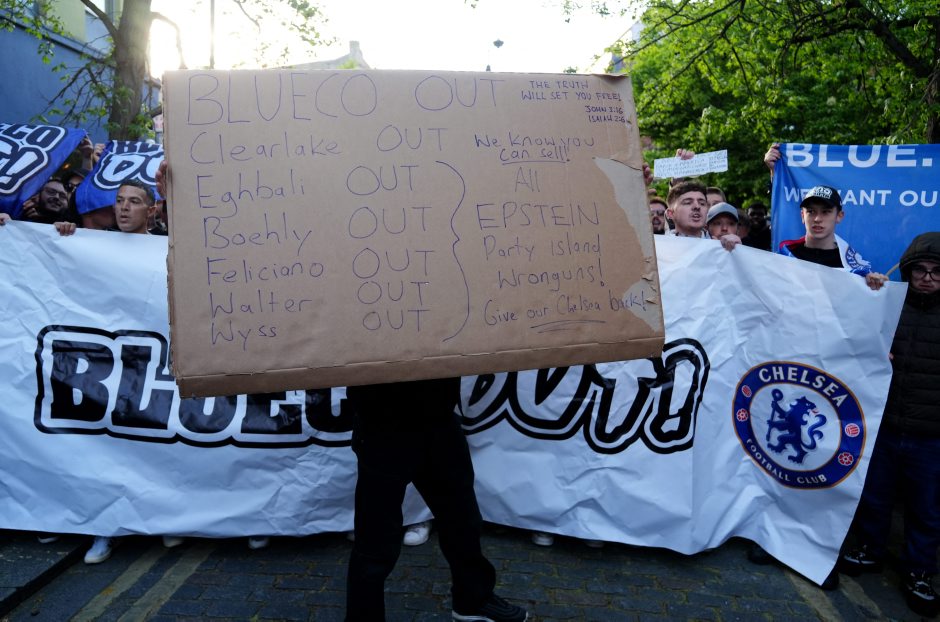 BLUECO OUT
THE TRUTH
WILL SET YOU FREE!
JOHN 3:16
Clearlake OUT
We know you
can sell!
Eghbali OUT
Boehly OUT
Feliciano OUT
Walter OUT
Wyss OUT
All
EPSTEIN
Party island
Wronguns!
Give our Chelsea back!
BLUE
WANT OU
BLUECO OUT!
CHELSEA
FOOTBALL CLUB